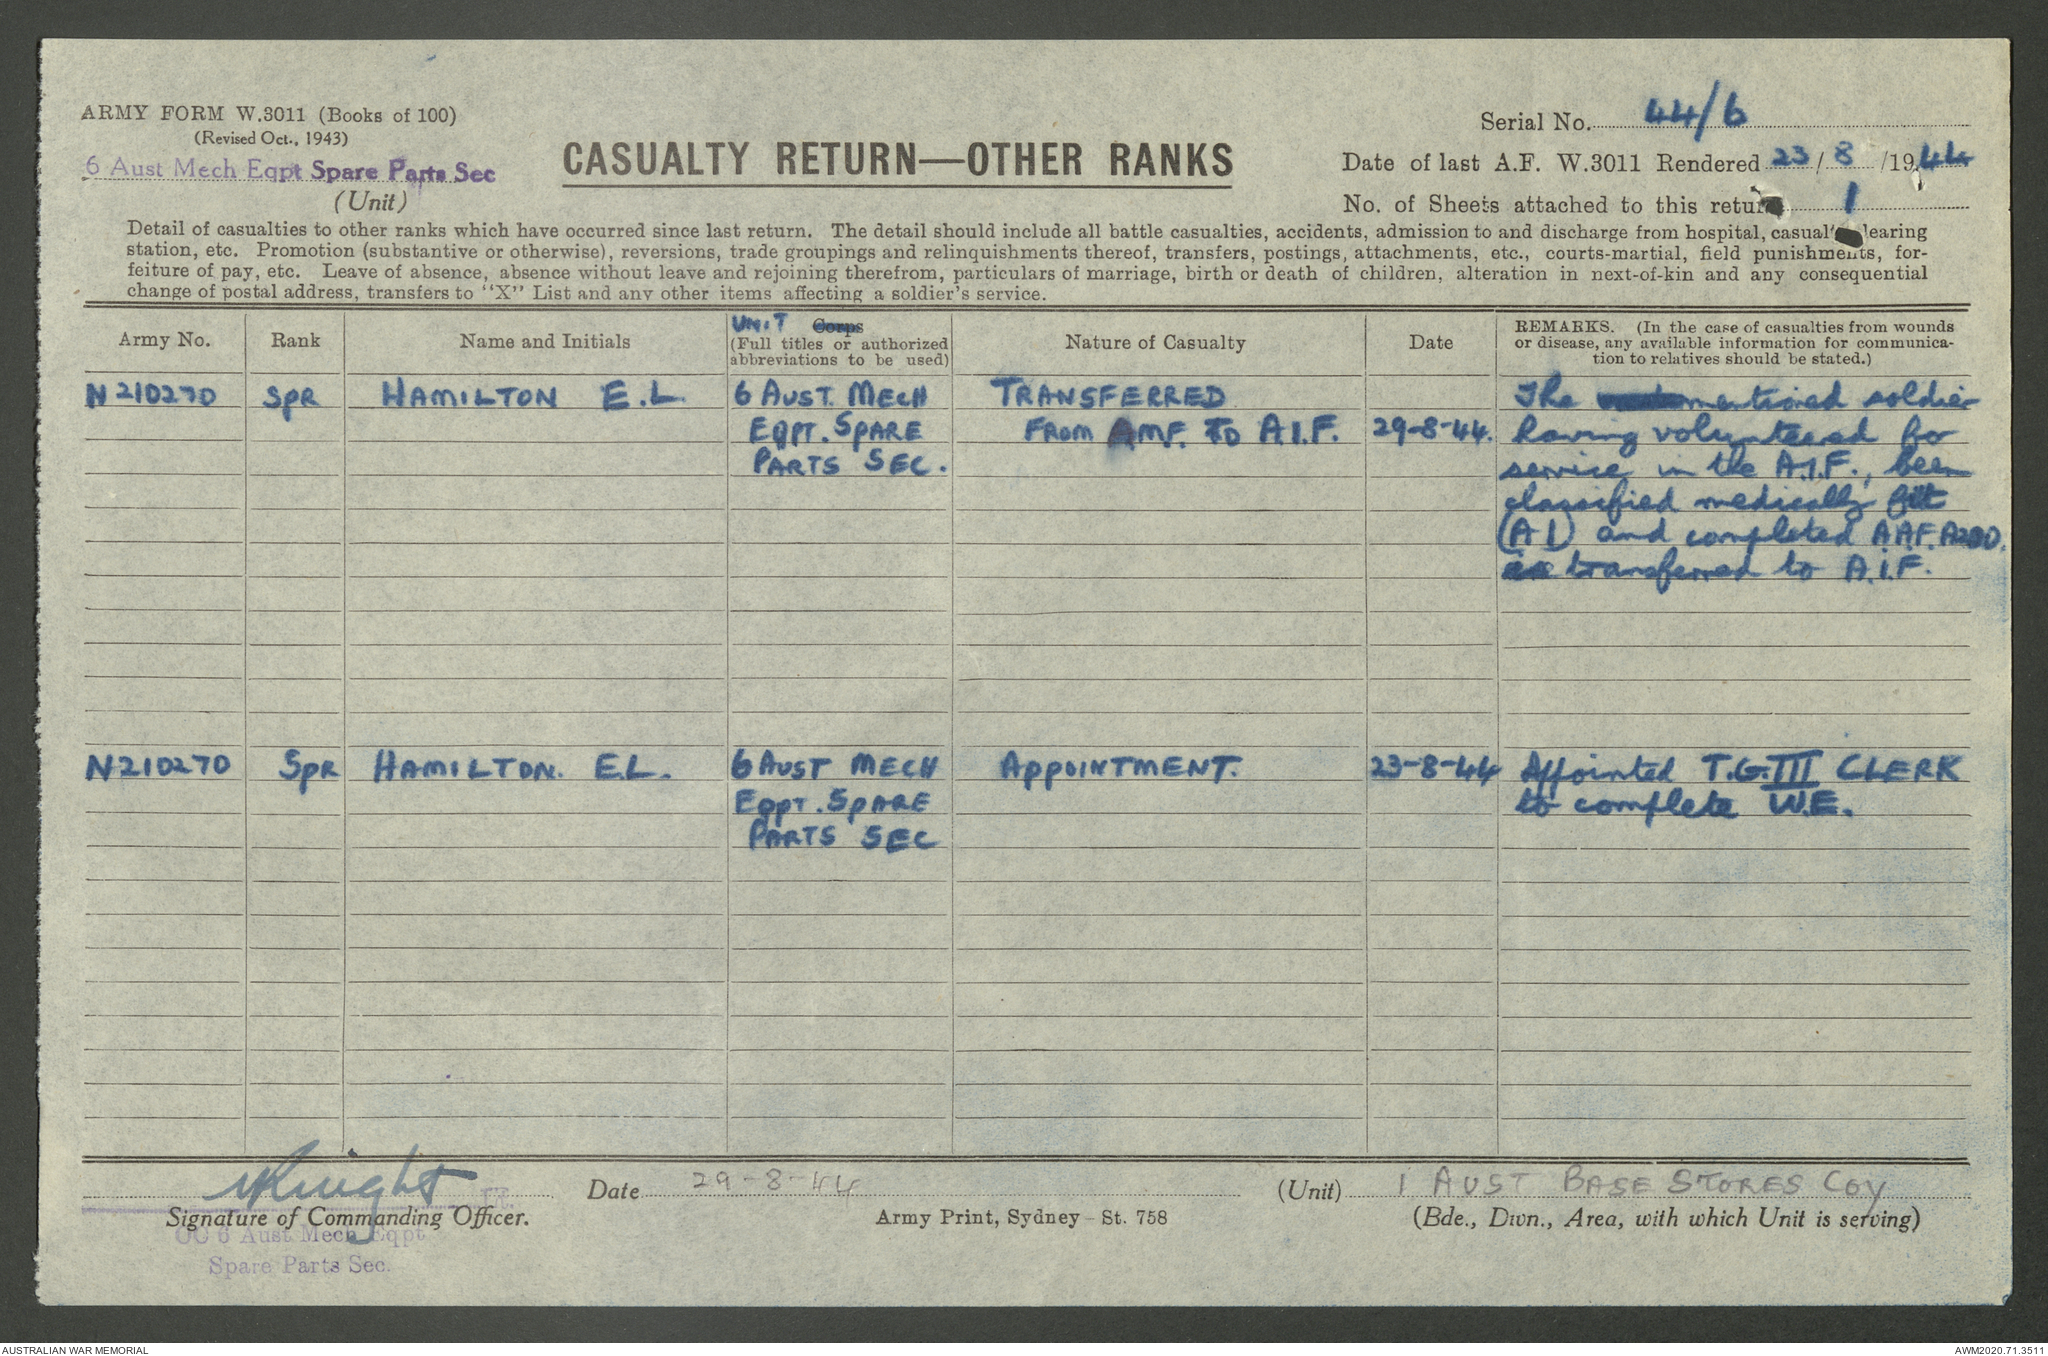 ARMY FORM W.3011 (Books of 100)
(Revised Oct., 1943)
6 Aust Mech Eqpt Spare Parts Sec
(Unit)
CASUALTY RETURN—OTHER RANKS
Serial No. 44/6
Date of last A.F. W.3011 Rendered 23/8/1944
No. of Sheets attached to this return 1
Detail of casualties to other ranks which have occurred since last return. The detail should include all battle casualties, accidents, admission to and discharge from hospital, casual learing
station, etc. Promotion (substantive or otherwise), reversions, trade groupings and relinquishments thereof, transfers, postings, attachments, etc., courts-martial, field punishments, for-
feiture of pay, etc. Leave of absence, absence without leave and rejoining therefrom, particulars of marriage, birth or death of children, alteration in next-of-kin and any consequential
change of postal address, transfers to "X" List and any other items affecting a soldier's service.
Army No.
Rank
Name and Initials
UNIT Corps
(Full titles or authorized
abbreviations to be used)
Nature of Casualty
Date
REMARKS. (In the case of casualties from wounds
or disease, any available information for communica-
tion to relatives should be stated.)
N210270 SPR HAMILTON E.L. 6 AUST. MECH TRANSFERRED The mentioned soldier
EQPT. SPARE FROM AMF. TO A.I.F. 29-8-44. having volunteered for
PARTS SEC. service in the A.I.F., been
classified medically fit
(A1) and completed A.A.F. A200.
transferred to A.I.F.
N210270 SPR HAMILTON. E.L. 6 AUST MECH APPOINTMENT. 23-8-44 Appointed T.G.III CLERK
EQPT. SPARE to complete W.E.
PARTS SEC
Knight
Date 29-8-44
(Unit) 1 AUST BASE STORES COY
Signature of Commanding Officer.
Army Print, Sydney - St. 758
(Bde., Divn., Area, with which Unit is serving)
OC 6 Aust Mech Eqpt
Spare Parts Sec.
AUSTRALIAN WAR MEMORIAL
AWM2020.71.3511